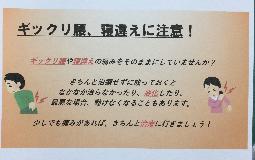 ギックリ腰、寝違えに注意！
ギックリ腰や寝違えの痛みをそのままにしていませんか？
きちんと治療せずに放っておくと
なかなか治らなかったり、悪化したり、
最悪な場合、動けなくなることもあります。
少しでも痛みがあれば、きちんと治療に行きましょう！